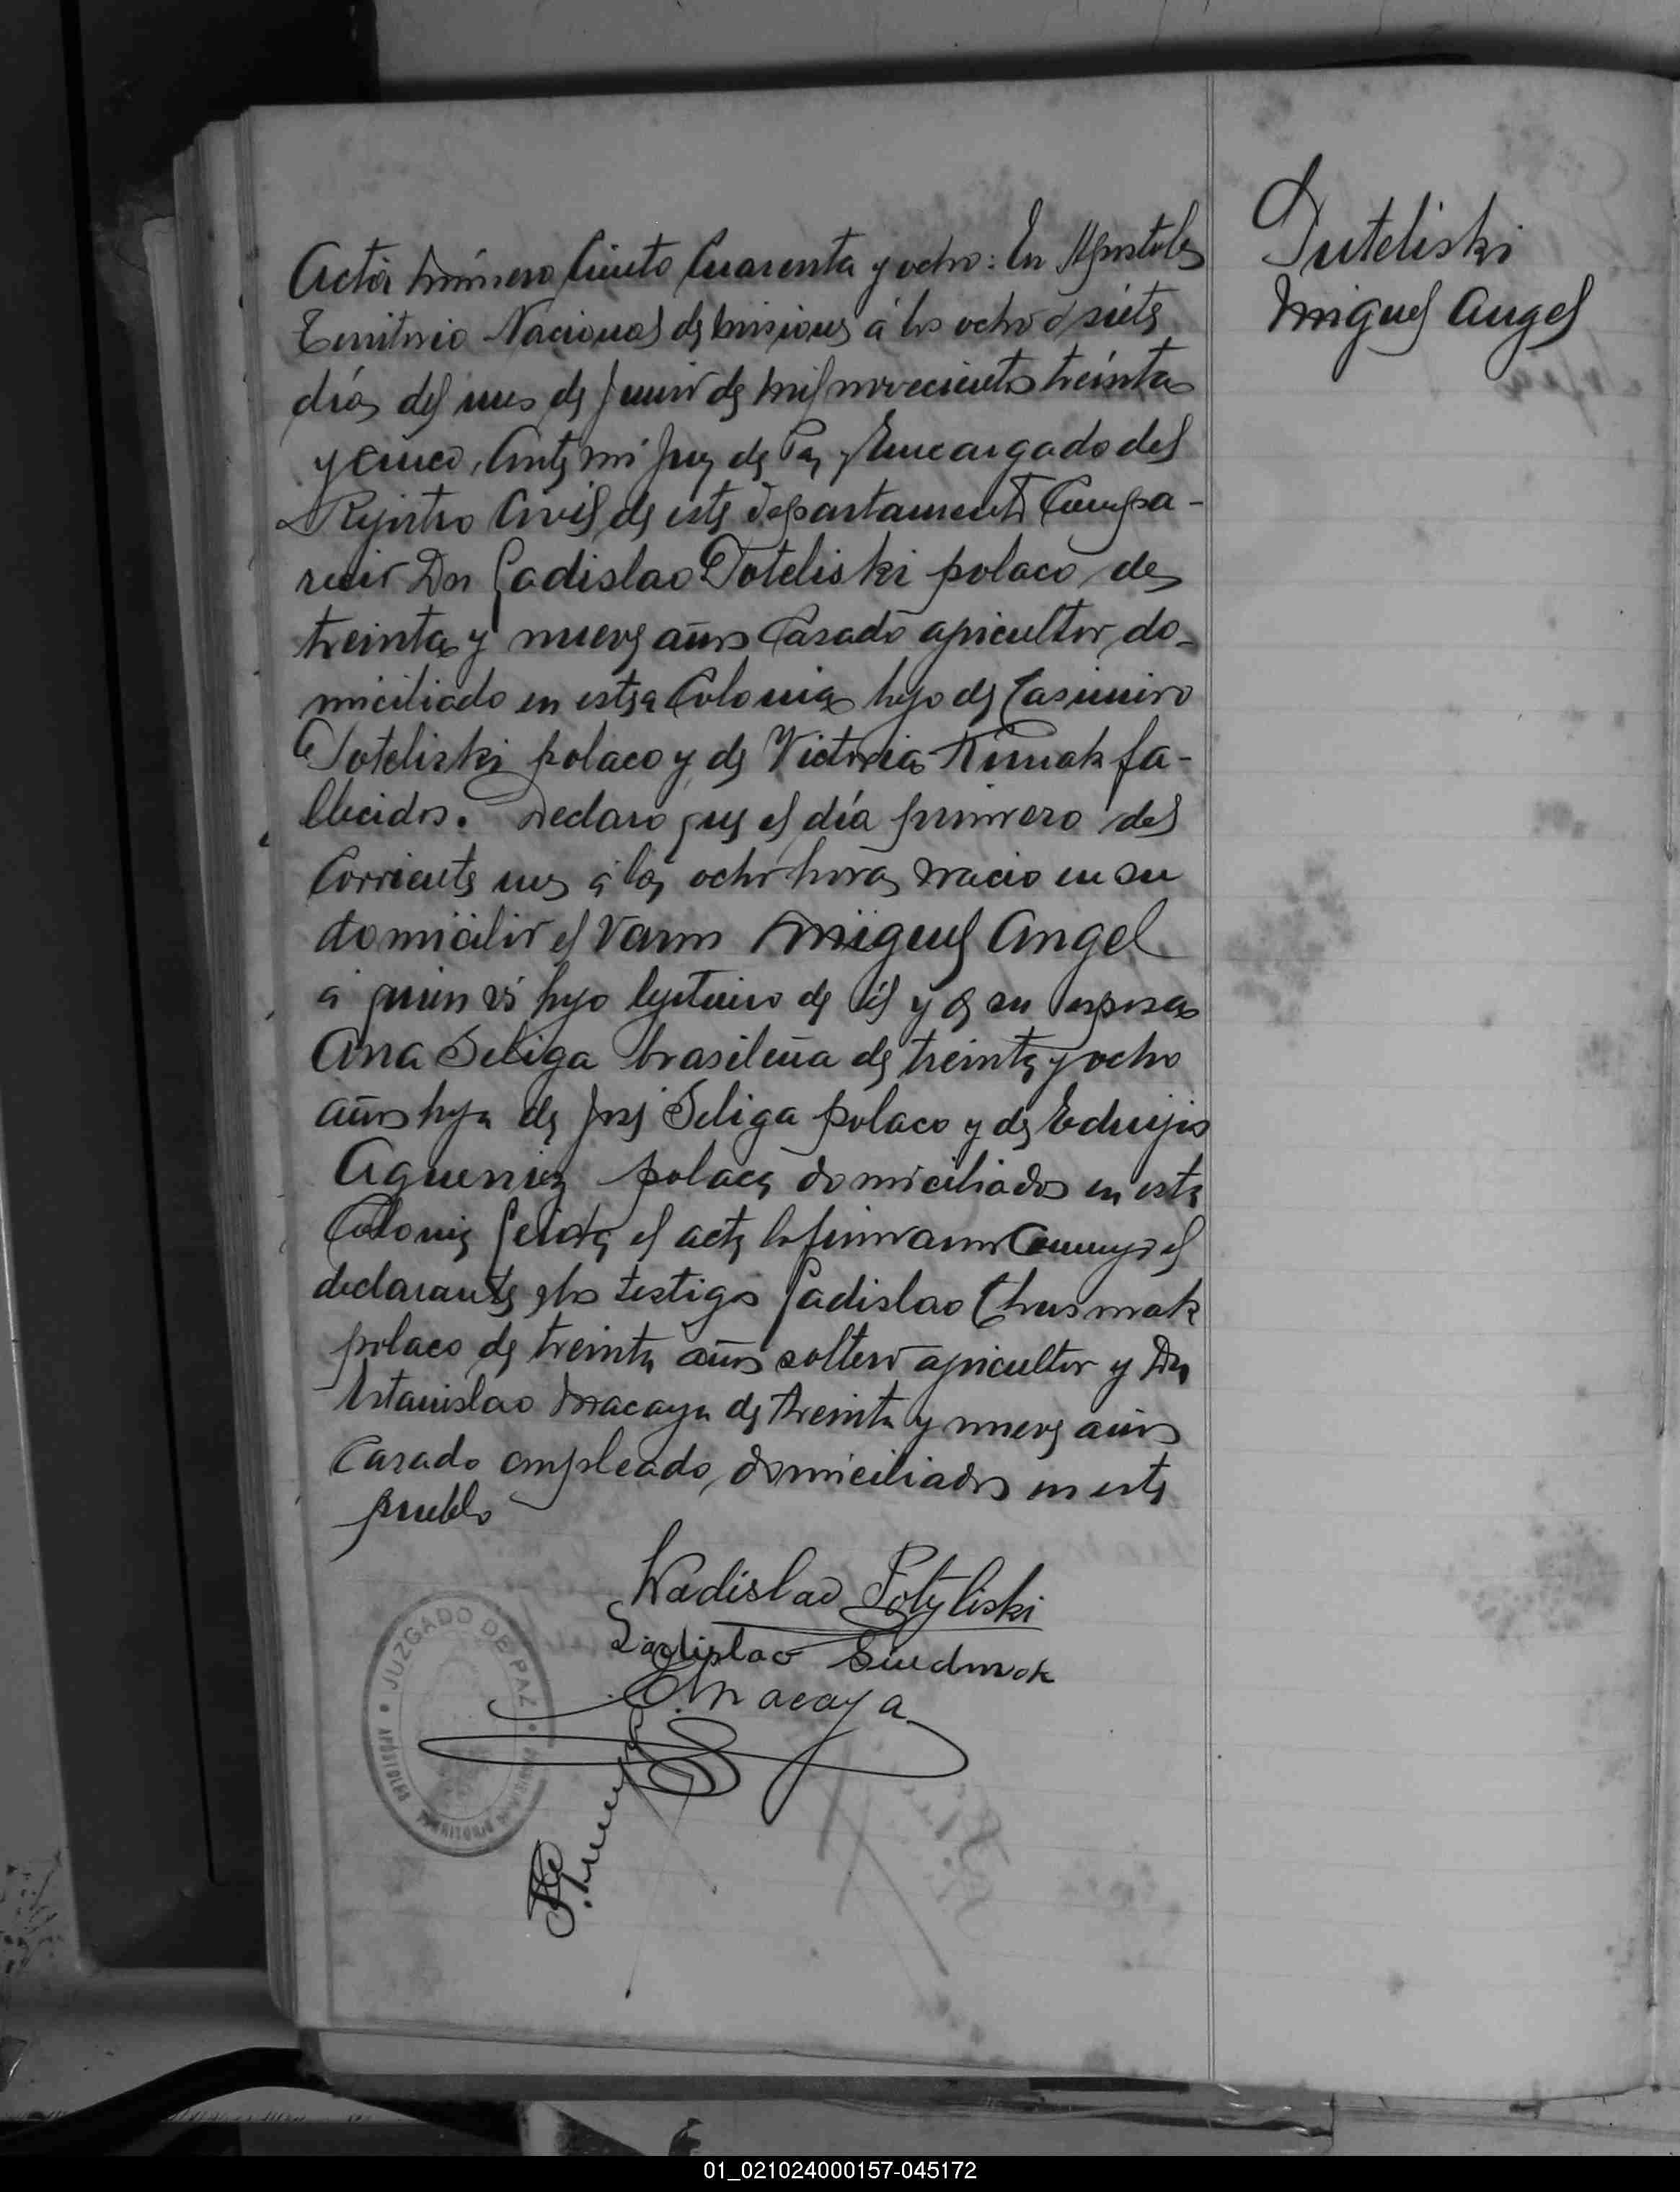 Acta número Ciento Cuarenta y ocho: En Apostoles
Territorio Nacional de Misiones á los ocho d siete
días del mes de Junio de mil novecientos treinta
y cinco, Ante mi Juez de Paz y Encargado del
Rejistro Civil de este departamento Compa-
recio Dn Ladislao Poteliski polaco de
treinta y nueve años Casado agricultor do-
miciliado en esta Colonia hijo de Casimiro
Poteliski polaco y de Victoria fa-
llecidos. Declaro que el día primero del
Corriente mes á las ocho horas nacio en su
domicilio el Varon Miguel Angel
á quien vi hijo lejitimo de él y de su esposa
Ana Seliga brasileña de treinta y ocho
años hija de José Seliga polaco y de Eduvijis
polaca domiciliados en esta
Colonia Leida el acta la firmaron Conmigo el
declarante y los testigos Ladislao Chusmak
polaco de treinta años soltero agricultor y Dn
Estanislao Macaya de treinta y nueve años
Casado empleado, domiciliados en este
pueblo
Puteliski
Miguel Angel
Wadislao Potyliski
Ladislao Siudmak
E. Macaya
JUZGADO DE PAZ
APÓSTOLES TERRITORIO MISIONES
01_021024000157-045172